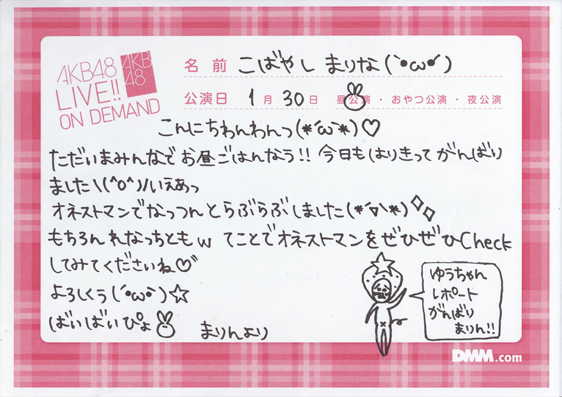 AKB48
LIVE!!
ON DEMAND
AKB
48
名前 こばやし まりな(`•ω•´)
公演日 1月30日 昼公演・おやつ公演・夜公演
こんにちわんわんっ(*´ω`*)♡
ただいまみんなでお昼ごはんなう!! 今日もはりきってがんばり
ました\(^o^)/いえあっ
オネストマンでなっつんとらぶらぶしました(*´▽`*)
もちろんれなっちともw てことでオネストマンをぜひぜひCheck
してみてくださいね♡
よろしくぅ(´•ω•`)☆
ばいばいぴょ
まりんより
ゆうちゃん
レポート
がんばり
まりん!!
DMM.com